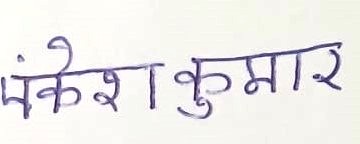 पंकेश कुमार